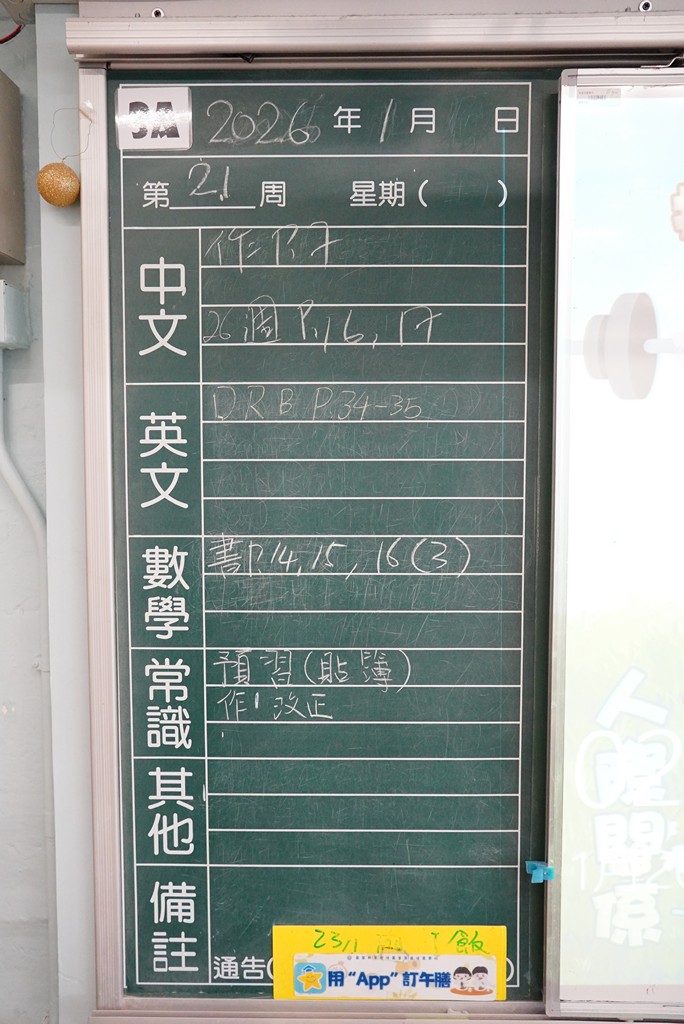 3A 2026年1月 日
第21周 星期( )
中文
作二P.7
26週 P.16, 17
英文
DRB P.34-35
數學
書P.14, 15, 16(3)
常識
預習(貼簿)
作1 改正
其他
備註
通告(
)
23/1 飯
用“App”訂午膳
人
關係